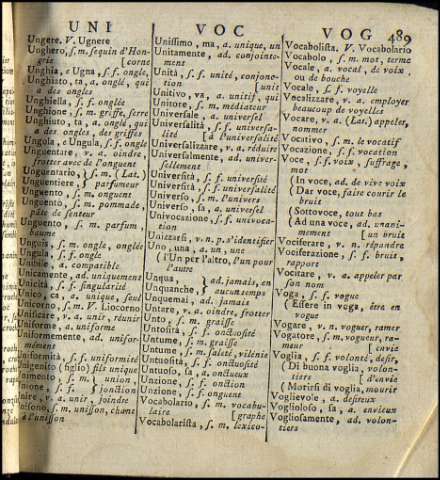 UNI VOC VOG 489
Ungere. V. Ugnere
Unghero, s. m. sequin d'Hon-
grie [corne
Unghia, e Ugna, s. f. ongle,
Unghiato, ta, a. onglé, qui
a des ongles
Unghiella, s. f. onglée
Unghione, s. m. griffe, serre
Unghiuto, ta, a. onglé, qui
a des ongles, des griffes
Ungola, e Ungula, s. f. ongle
Unguentare, v. a. oindre,
frotter avec de l'onguent
Unguentario, s. m. (Lat.)
Unguentiere } parfumeur
Unguento, s. m. onguent
Unguento, s. m. pommade,
pâte de senteur
Unguento, s. m. parfum,
baume
Unguis, s. m. ongle, onglée
Ungula, s. f. ongle
a. compatible
Unicamente, ad. uniquement
Unicità, s. f. singularité
Unico, ca, a. unique, seul
Unicorno, s. m. V. Liocorno
Unificare, v. a. unir, réunir
Uniforme, a. uniforme
Uniformemente, ad. unifor-
mément
Uniformità, s. f. uniformité
Unigenito (figlio) fils unique
s. m. } union,
Unione, s. f. } jonction
Unire, v. a. unir, joindre
Unisono, s. m. unisson, chant
à l'unisson
Unissimo, ma, a. unique, un
Unitamente, ad. conjointe-
ment
Unità, s. f. unité, conjonc-
tion [unit
Unitivo, va, a. unitif, qui
Unitore, s. m. médiateur
Universale, a. universel
Universalità, s. f. universa-
lité [à l'universalité
Universalizzare, v. a. réduire
Universalmente, ad. univer-
sellement
Università, s. f. université
Università, s. f. universalité
Universo, s. m. l'univers
Universo, sa, a. universel
Univocazione, s. f. univoca-
tion
Unizzarsi, v. n. p. s'identifier
Uno, una, a. un, une
(l'Un per l'altro, l'un pour
l'autre
Unqua } ad. jamais, en
Unquanche, } aucun temps
Unquemai, ad. jamais
Untare, v. a. oindre, frotter
Unto, s. m. graisse
Untosità, s. f. onctuosité
Untume, s. m. graisse
Untume, s. m. saleté, vilénie
Untuosità, s. f. onctuosité
Untuoso, sa, a. onctueux
Unzione, s. f. onction
Unzione, s. f. onguent
Vocabolario, s. m. vocabu-
laire [graphe
Vocabolarista, s. m. lexico-
Vocabolista. V. Vocabolario
Vocabolo, s. m. mot, terme
Vocale, a. vocal, de voix,
ou de bouche
Vocale, s. f. voyelle
Vocalizzare, v. a. employer
beaucoup de voyelles
Vocare, v. a. (Lat.) appeler,
nommer
Vocativo, s. m. le vocatif
Vocazione, s. f. vocation
Voce, s. f. voix, suffrage,
mot
(In voce, ad. de vive voix
(Dar voce, faire courir le
bruit
(Sottovoce, tout bas
(Ad una voce, ad. unani-
mement [un bruit
Vociferare, v. n. répandre
Vociferazione, s. f. bruit,
rapport
Vocitare, v. a. appeler par
son nom
Voga, s. f. vogue
(Essere in voga, être en
vogue
Vogare, v. n. voguer, ramer
Vogatore, s. m. vogueur, ra-
meur [envie
Voglia, s. f. volonté, desir,
(Di buona voglia, volon-
tiers [d'envie
(Morirsi di voglia, mourir
Voglievole, a. desireux
Voglioloso, sa, a. envieux
Vogliosamente, ad. volon-
tiers